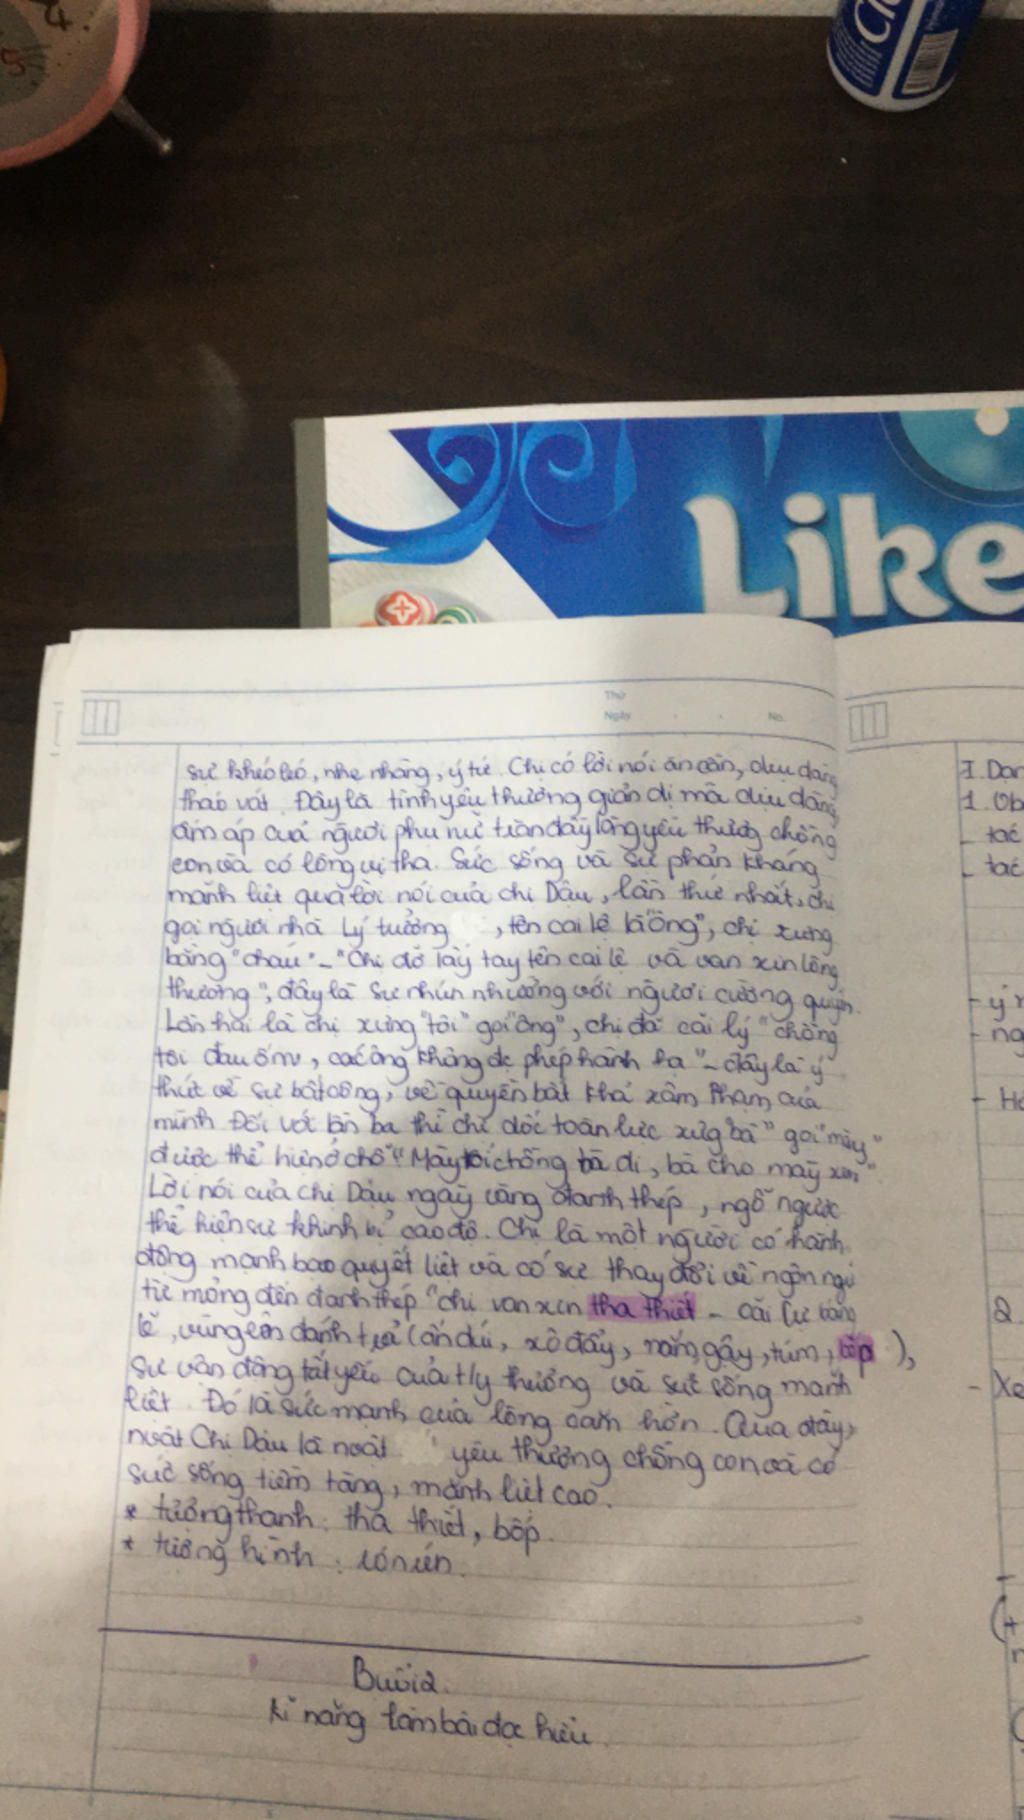 Like
Thứ
Ngày No.
sự khéo léo, nhẹ nhàng, ý tứ. Chị có lời nói ân cần, dịu dàng
tháo vát. Đây là tình yêu thương giản dị mà dịu dàng
ấm áp của người phụ nữ tràn đầy lòng yêu thương chồng
con và có lòng vị tha. Sức sống và sự phản kháng
mãnh liệt qua lời nói của chị Dậu, lần thứ nhất, chị
gọi người nhà Lý tưởng , tên cai lệ là "ông", chị xưng
bằng "cháu" - "Chị đỡ lấy tay tên cai lệ và van xin lòng
thương", đây là sự nhún nhường với người cường quyền.
Lần hai là chị xưng "tôi" gọi "ông", chị đã cãi lý "chồng
tôi đau ốm, các ông không đc phép hành hạ" - đây là ý
thức về sự bất công, về quyền bất khả xâm phạm của
mình. Đối với lần ba thì chị dốc toàn lực xưng "bà" gọi "mày"
được thể hiện ở chỗ "Mày trói chồng bà đi, bà cho mày xem"
Lời nói của chị Dậu ngày càng đanh thép, ngỗ ngược
thể hiện sự khinh bỉ cao độ. Chị là một người có hành
động mạnh bạo quyết liệt và có sự thay đổi về ngôn ngữ
từ mỏng đến đanh thép "chị van xin tha thiết - cãi lự bằng
lẽ, vùng lên đánh trả (ấn dúi, xô đẩy, nắm gậy, túm, bốp ),
sự vận động tất yếu của tly thường và sức sống mãnh
liệt. Đó là sức mạnh của lòng căm hờn. Qua đây,
nvật Chị Dậu là nvật yêu thương chồng con và có
sức sống tiềm tàng, mãnh liệt cao.
* tượng thanh: tha thiết, bốp.
* tượng hình: rón rén.
Buổi 2.
kĩ năng làm bài đọc hiểu.
I. Dạn
1. Ob
- tác
- tác
- ý n
- ng
2.
- Xe